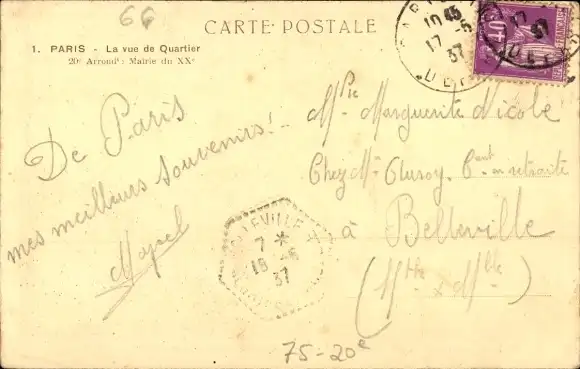 66
CARTE POSTALE
1. PARIS - La vue de Quartier
20e Arrondt : Mairie du XXe
De Paris
mes meilleurs souvenirs!..
Mlle Marguerite Nicole
Chez Mr
en retraite
à Belleville
(Mthe & Mlle)
10 45
17 -6
37
40
17
37
BELLEVILLE
7 *
18 -6
37
75-20e